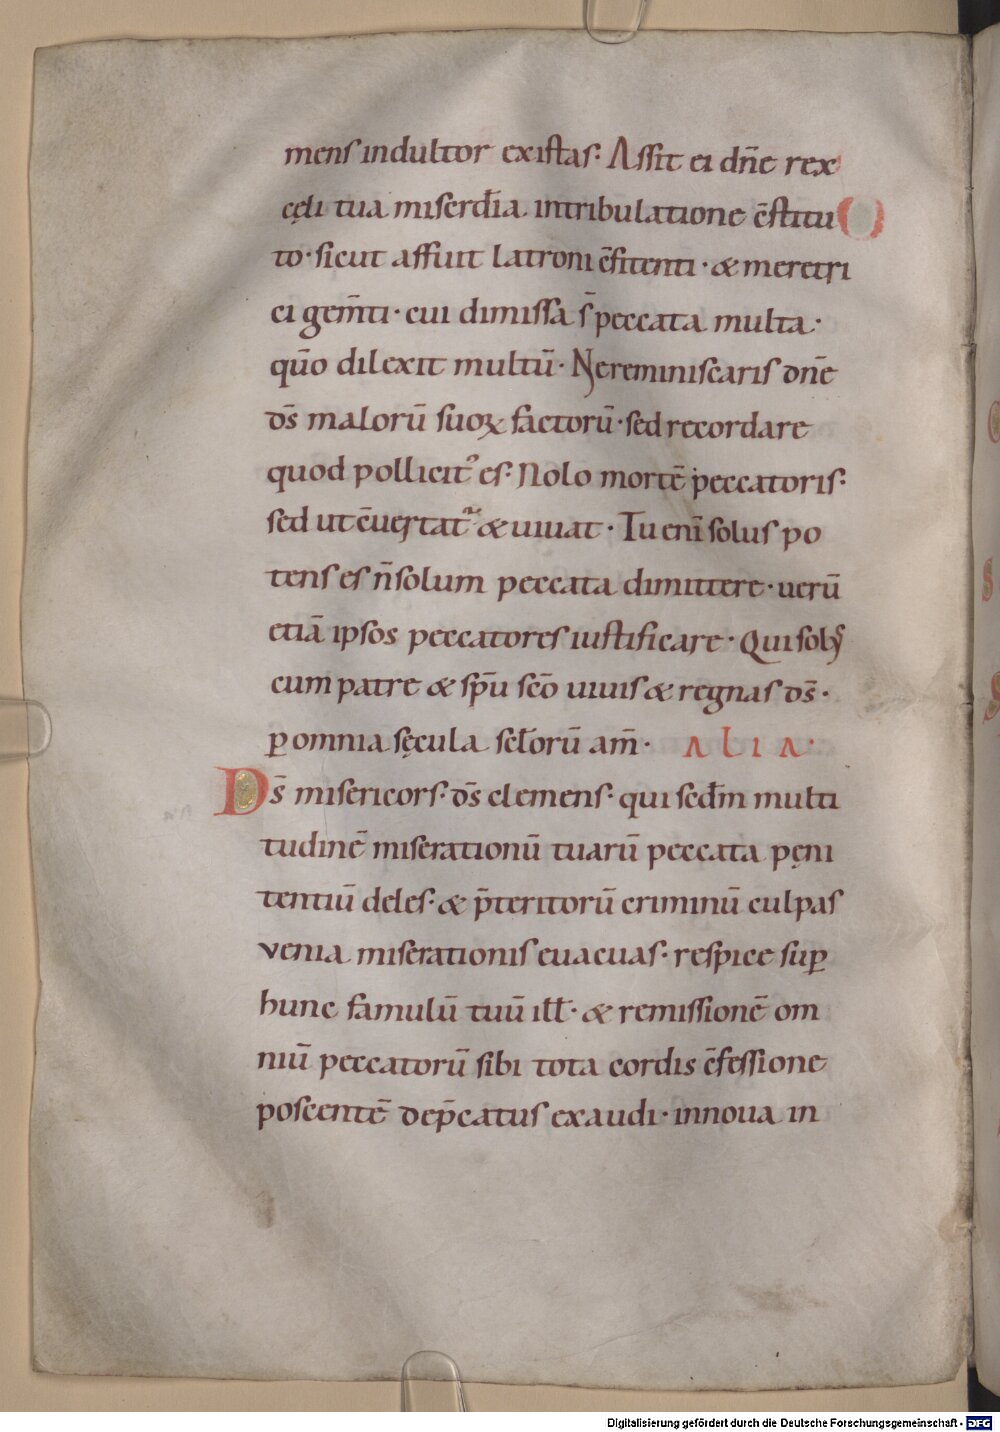 mens indultor existas· Assit ei dn̄e rex
cęli tua miserd̄ia intribulatione c̄stitu
to· sicut affuit latroni c̄fitenti· & meretri
ci gem̄ti· cui dimissa s̄ peccata multa·
qūo dilexit multū· Nereminiscaris dn̄e
ds̄ malorū suoꝝ factorū· sed recordare
quod pollicitꝰ es· Nolo mortē peccatoris·
sed ut c̄uertat᷑ & uiuat· Tu enī solus po
tens es n̄ solum peccata dimittere· uerū
etiā ipsos peccatores iustificare· Qui solꝰ
cum patre & sp̄u sc̄o uiuis & regnas ds̄·
ꝑ omnia sęcula scl̄orū am̄· ALIA·
Ds̄ misericors· ds̄ clemens· qui secd̄m multi
tudinē miserationū tuarū peccata pęni
tentiū deles· & p̄teritorū criminū culpas
venia miserationis euacuas· respice suꝑ
hunc famulū tuū ill̄· & remissionē om
niū peccatorū sibi tota cordis c̄fessione
poscentē dep̄catus exaudi· innoua in
Digitalisierung gefördert durch die Deutsche Forschungsgemeinschaft - DFG